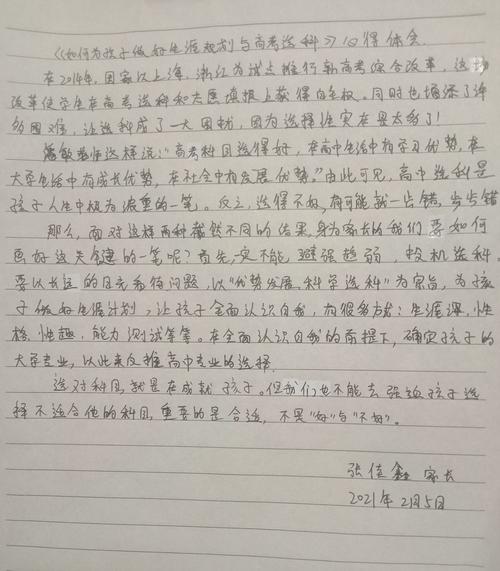 《如何为孩子做好生涯规划与高考选科》心得体会.
在2014年,国家以上海,浙江为试点推行新高考综合改革,这
改革使学生在高考选科和志愿填报上获得自主权。同时也增添了许
多困难,让选科成了一大困扰,因为选择性实在是太多了!
老师这样说:"高考科目选得好,在高中生活中有学习优势,在
大学生活中有成长优势,在社会中有发展优势。"由此可见,高中选科是
孩子人生中极为浓重的一笔。反之,选得不好,有可能就一步错,步步错
那么,面对这样两种截然不同的结果,身为家长的我们要如何
画好这关键的一笔呢?首先一定不能,避强趋弱,投机选科。
要以长远的目光看待问题,以"优势发展,科学选科"为宗旨,为孩
子做好生涯计划,让孩子全面认识自我,有很多方式:生涯课,性
格,性趣,能力测试等等。在全面认识自我的前提下,确定孩子的
大学专业,以此来反推高中专业的选择.
选对科目,就是在成就孩子。但我们也不能去强迫孩子选
择不适合他的科目,重要的是合适,不是"好"与"不好"。
张佳鑫 家长
2021年2月5日